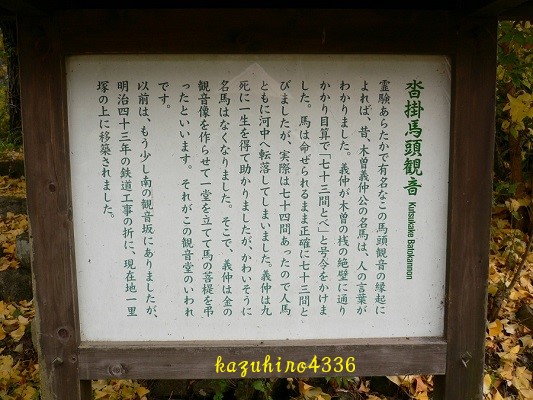 沓掛馬頭観音
Kutsukake Batokannon
霊験あらたかで有名なこの馬頭観音の縁起に
よれば、昔、木曽義仲公の名馬は、人の言葉が
わかりました。義仲が木曽の桟の絶壁に通り
かかり目算で「七十三間とべ」と号令をかけま
した。馬は命ぜられるまま正確に七十三間と
びましたが、実際は七十四間あったので人馬
ともに河中へ転落してしまいました。義仲は九
死に一生を得て助かりましたが、かわいそうに
名馬はなくなりました。そこで、義仲は金の
観音像を作らせて一堂を立てて馬の菩提を弔
ったといいます。それがこの観音堂のいわれ
です。
以前は、もう少し南の観音坂にありましたが、
明治四十三年の鉄道工事の折に、現在地一里
塚の上に移築されました。
kazuhiro4336